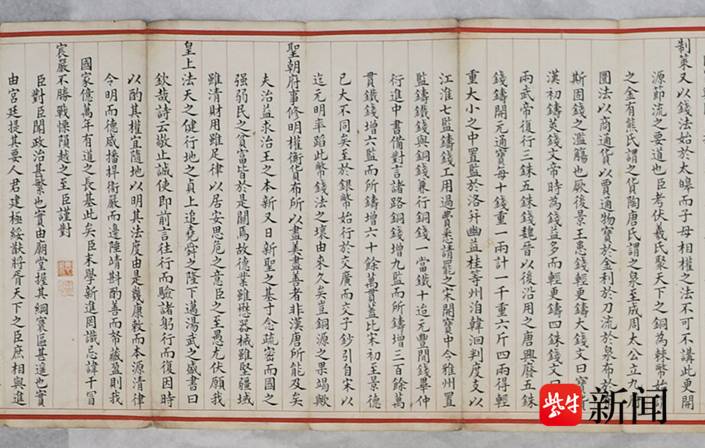 制策又以錢法始於太皥而子母相權之法不可不講此更開
源節流之要道也臣考伏羲氏聚天下之銅為棘幣
之金有熊氏謂之貨陶唐氏謂之泉至成周太公立九
圜法以商通貨以賈通物寳於金利於刀流於泉布於
斯固錢之濫觴也厥後景王患錢輕更鑄大錢文曰寳
漢初鑄莢錢文帝時為錢益多而輕更鑄四銖錢文曰
兩武帝復行三銖五銖錢魏晉以後沿用之唐興廢五銖
錢鑄開元通寳每十錢重一兩計一千重六斤四兩得輕
重大小之中置監於洛并幽益桂等州洎韓洄判度支以
江淮七監鑄錢工用過費悉請罷之宋開寳中令雅州置
監鑄鐵錢與銅錢兼行銅錢一當鐵十迨元豐間錢畢仲
衍進中書備對言諸路銅錢增九監而所鑄增三百餘萬
貫鐵錢增六監而所鑄增六十餘萬貫蓋比宋初至景德
已大不同矣至於銀幣始行於交廣而交子鈔引自宋以
迄元明率蹈此弊錢法之壞由來久矣豈銅源之果竭歟
聖朝府事修明權衡貨布所以盡美盡善者非漢唐所能及矣
夫治益求治王之本新又日新聖之基于念疏密而國之
强弱民之貧富皆於是關焉故德業雖懋器械雖堅疆域
雖清財用雖足律以居安思危之意臣之至愚尤伏願我
皇上法天之健行地之貞上追堯舜之隆下邁湯武之盛書曰
欽哉詩云敬止誠使即前言往行而驗諸躬行而復因時
以酌其權宜隨地以明其法度由是幾康敕而本源清律
令明而德威播捍衛嚴而邊陲靖斟酌善而帑藏盈則我
國家億萬年有道之長基此矣臣末學新進罔識忌諱干冒
宸嚴不勝戰慄隕越之至臣謹對
臣對臣聞政治甚繁也實由廟堂握其綱寰區甚遥也實
由宮廷提其要人君建極綏猷將胥天下之臣庶相與進
紫牛新闻